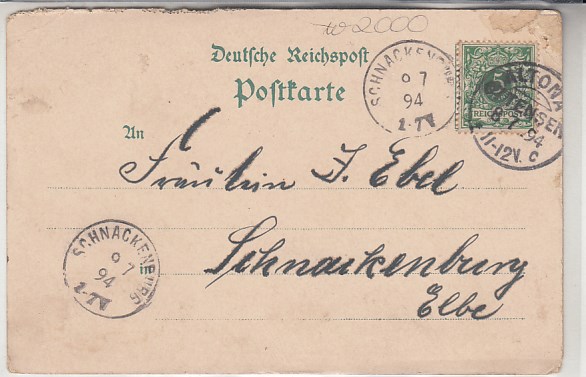 w 2000
Deutsche Reichspost
Postkarte
SCHNACKENBURG
9 7
94
1-7V
5
REICHSPOST
ALTONA
OTTENSEN
8 7 94
11-12V. c
An
Fräulein J. Ebel
in Schnackenburg
Elbe
SCHNACKENBURG
9 7
94
1-7V